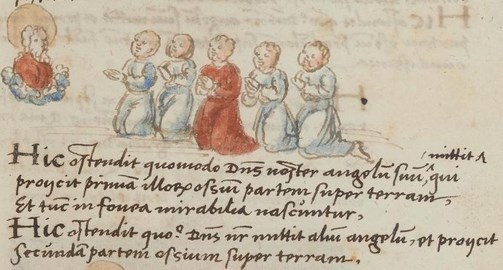 mittit ^
Hic ostendit quomodo Dn̄s noster angelū suū, ^ qui
proijcit primā illorū ossiū partem super terram,
Et tūc in fouea mirabilia nascuntur,
Hic ostendit quoº Dn̄s nr̄ mittit aliū angelū, et proijcit
secundā partem ossium super terram.